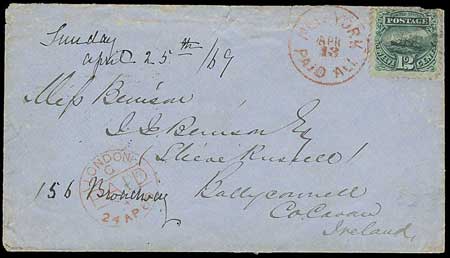 Sunday
april 25th/69
NEW YORK
APR
13
PAID ALL
POSTAGE
12
Miss Benison
Benison Esq
(Slieve Russell)
LONDON
PAID
24 AP
156 Broadway
Ballyconnell
Co Cavan
Ireland